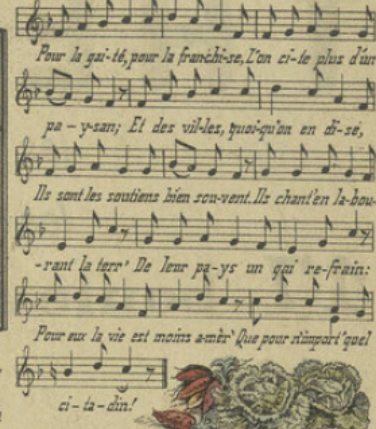 Pour la gai-té, pour la franchi-se, L'on ci-te plus d'un
pa-y-san; Et des vil-les, quoi-qu'on en di-se,
Ils sont les soutiens bien sou-vent. Ils chant'en la-bou-
-rant la terr' De leur pa-ys un gai re-frain:
Pour eux la vie est moins a-mèr' Que pour n'import' quel
ci-ta-din!